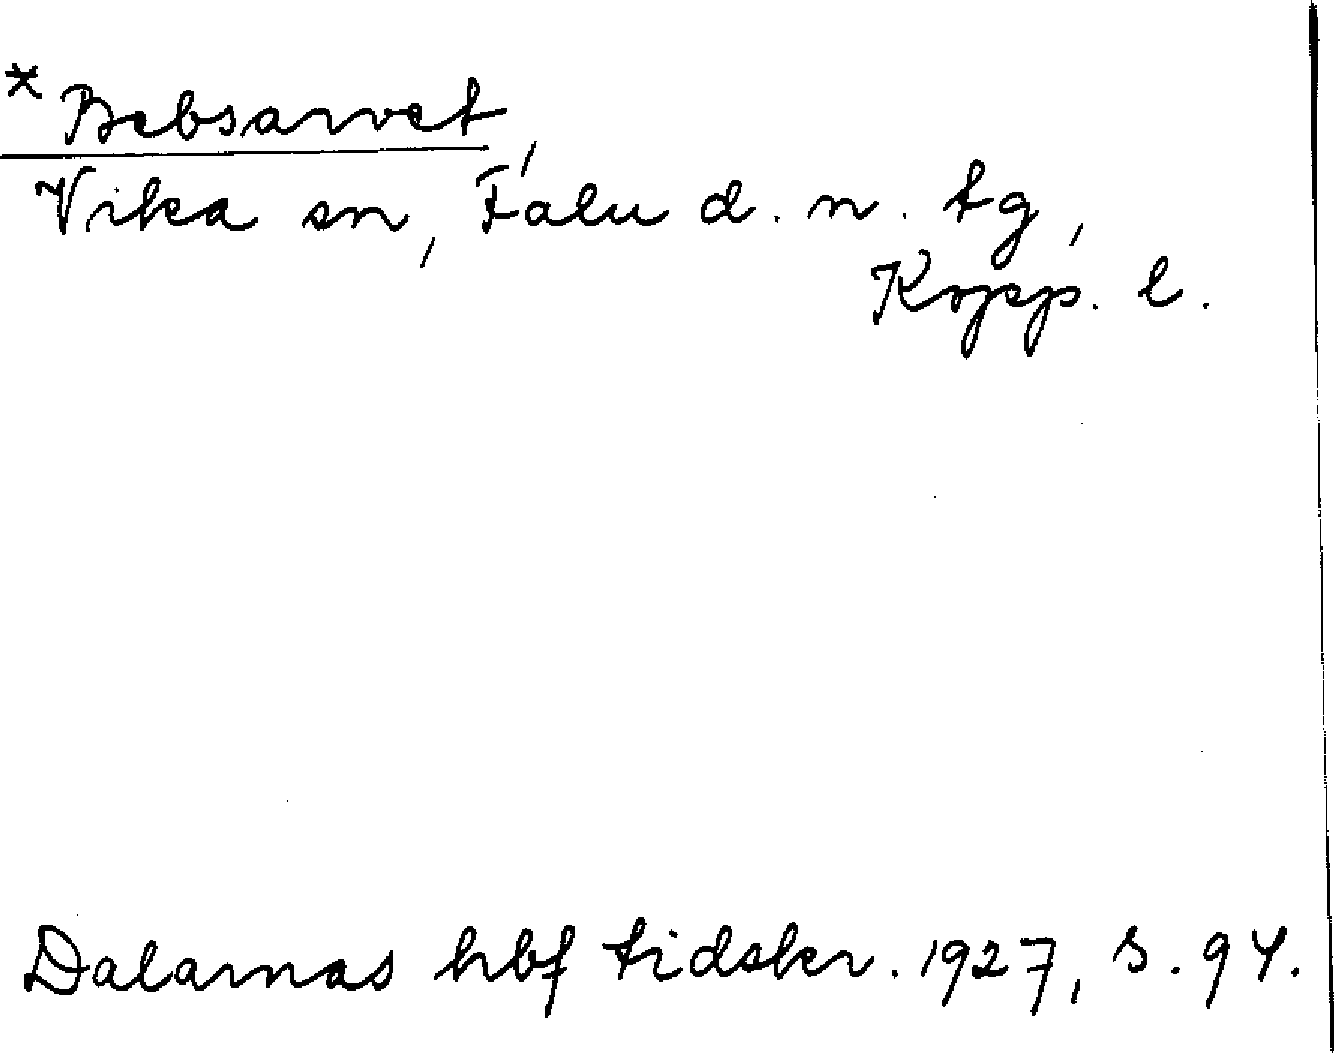 * Bebsarvet,
Vika sn, Falu d. n. tg,
Kopp. l.
Dalarnas hbf tidskr. 1927, s. 94.